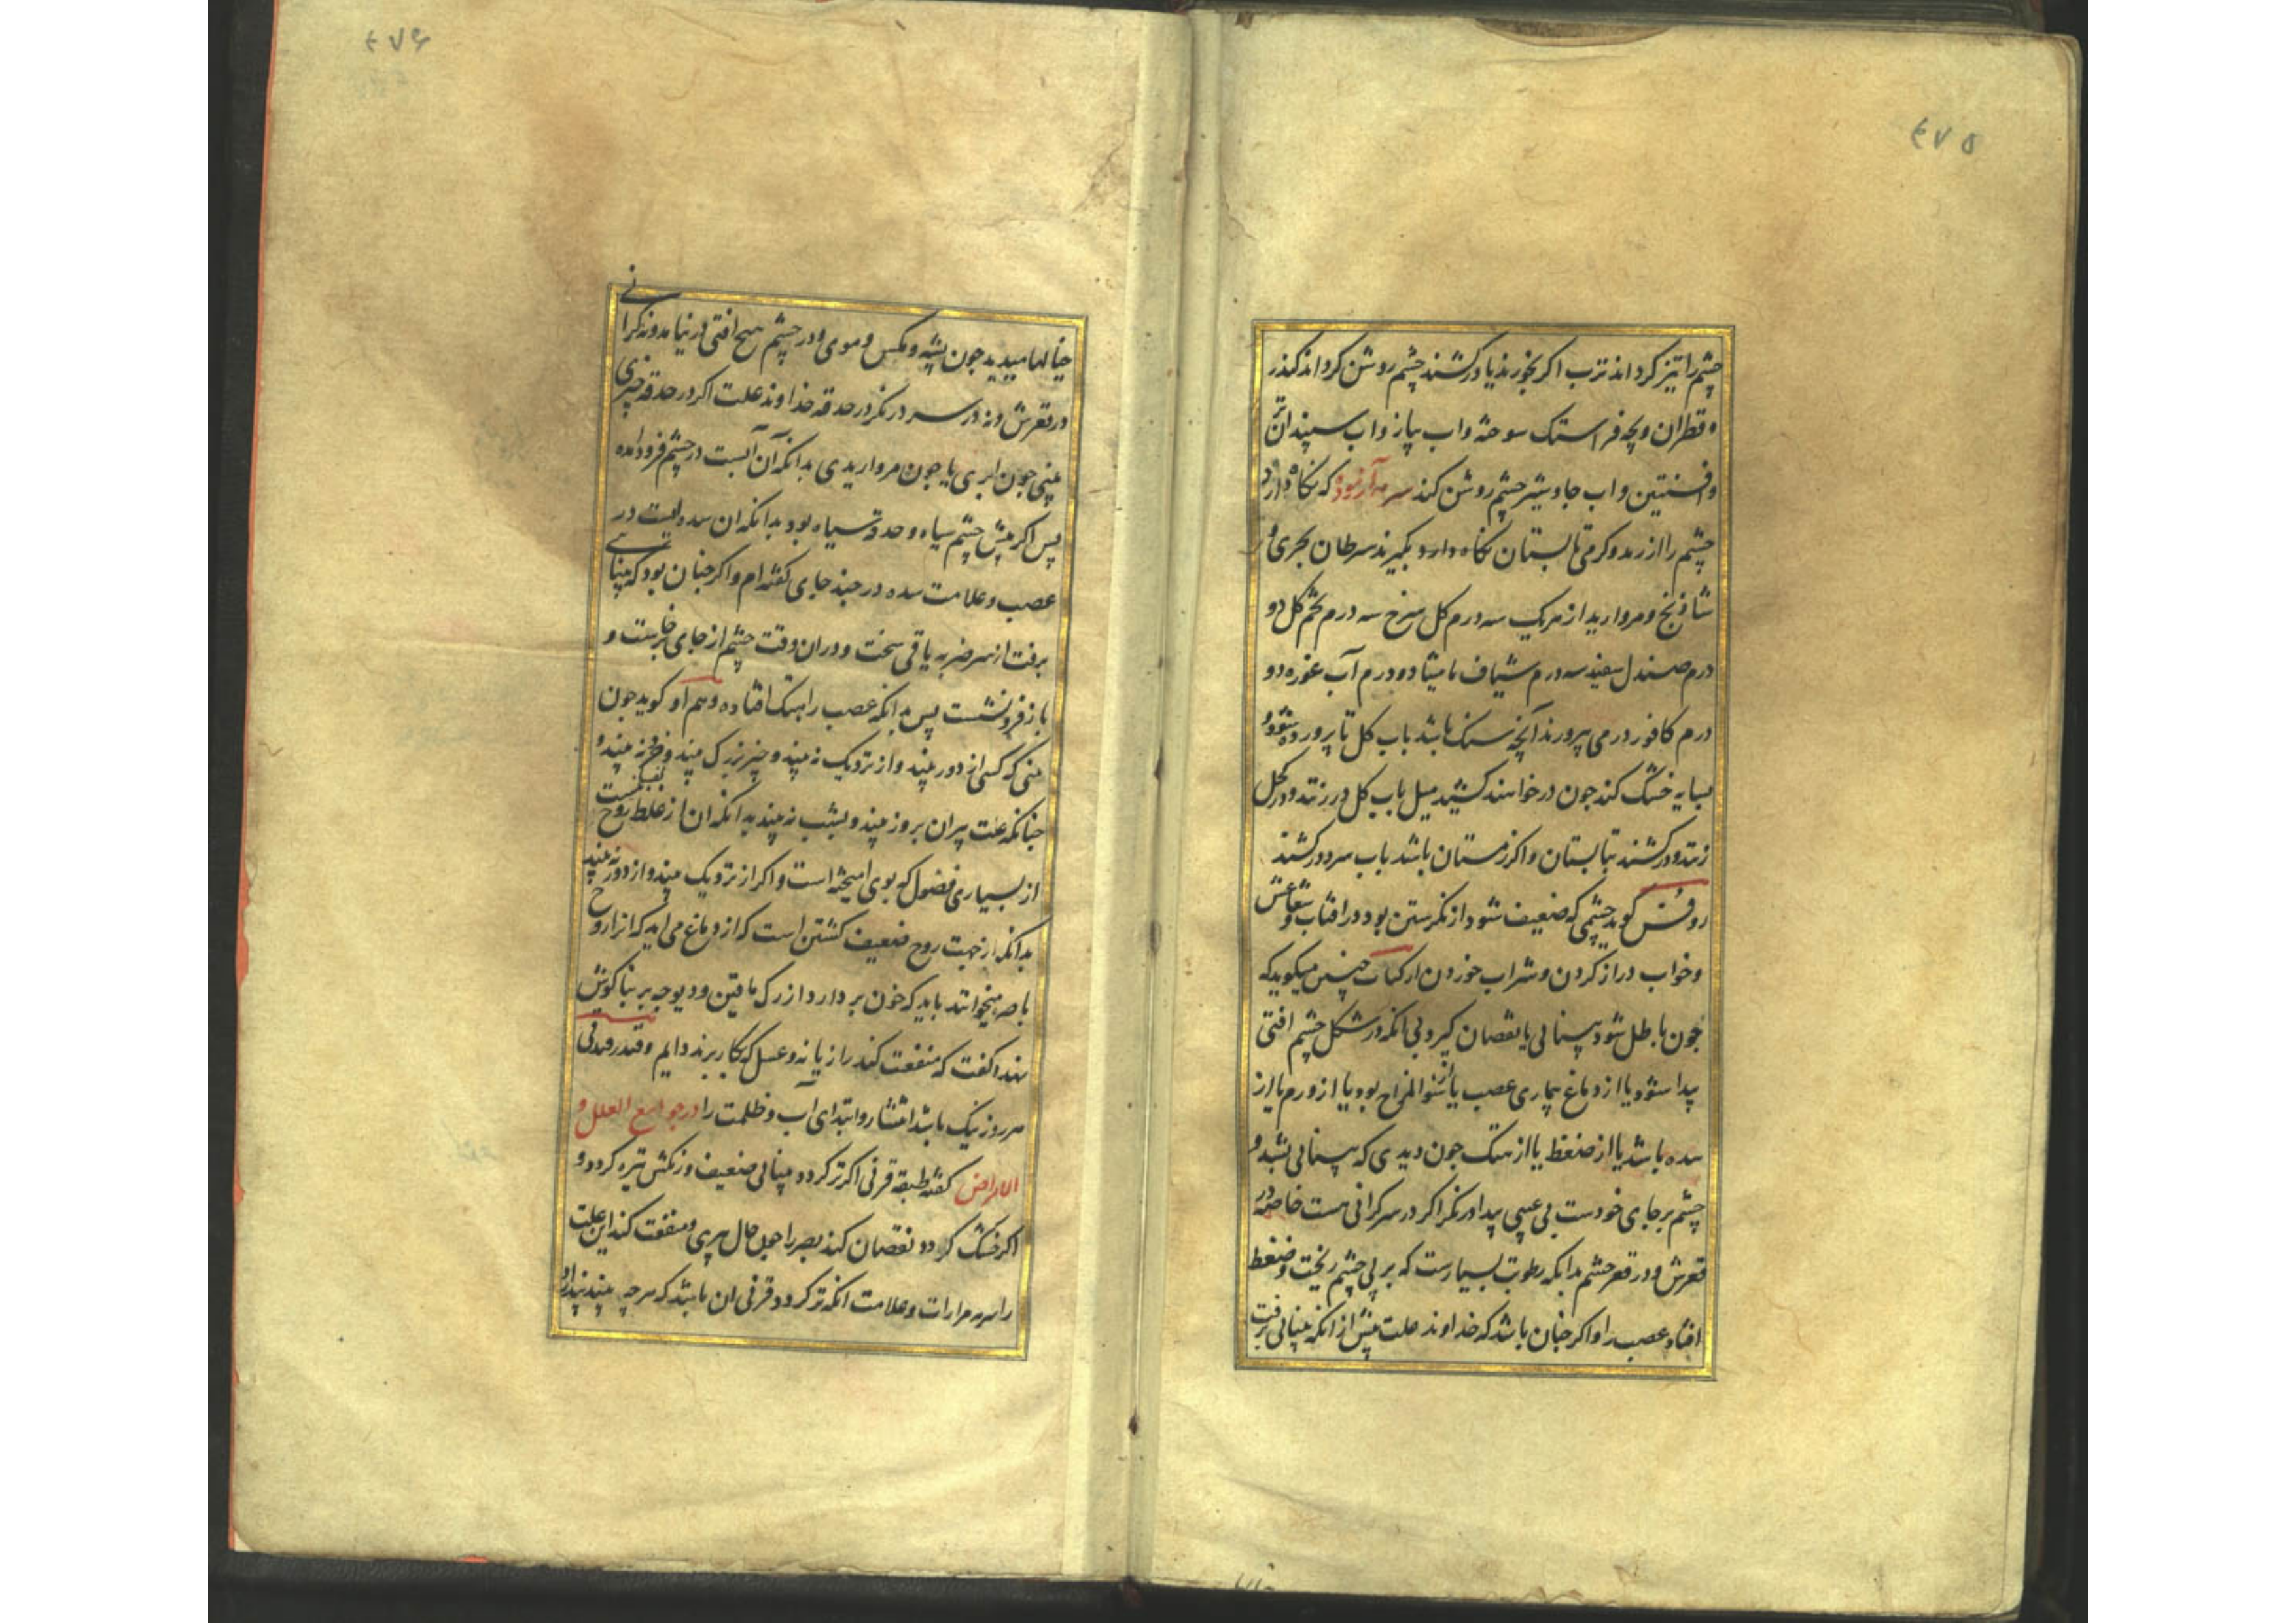 ٤٧٥
چشم را تیز کرداند ترب اکر بخورند یا درکشند چشم روشن کرداند کندر
و قطران وبچه فراستک سوخته واب پیاز واب سپندان تر
وافسنتین واب جاوشیر چشم روشن کند سرمه آزموده که نکاه دارد
چشم را از رمد وکرمی تابستان نکاه دارد بکیرند سرطان بحری و
شاذنج ومروارید از هریک سه درم کل سرخ سه درم تخم کل دو
درم صندل سفید سه درم شیاف مامیثا دو درم آب غوره دو
درم کافور درمی بپرورند آنچه سنک باشد باب کل تا پرورده شود و
بسایه خشک کند جون درخواهند کشید میل باب کل در زنند ودر کحل
زنند ودرکشند بتابستان واکر زمستان باشد باب سرد درکشند
روفس کوید چشمی که ضعیف شود از نکرستن بود در افتاب وشعاعش
وخواب دراز کردن وشراب خوردن ارکیات چنین میکوید که
جون باطل شود بینائی یا نقصان کیرد بی انکه در شکل چشم افتی
پیدا شود یا از دماغ بیماری عصب یا از سوالمزاج بود یا از ورم یا از
سده باشد یا از ضغظ یا از هتک جون دیدی که بینائی بشد و
چشم برجای خودست بی عیبی پیدا درنکر اکر در سر کرانی هست خاصه در
قعرش ودر قعر چشم بدانکه رطوبت بسیارست که بر پی چشم ریخت وضغط
افتاد عصب را واکر جنان باشد که خداوند علت پیش از انکه بینائی برفت
٤٧۶
خیالها میدید جون پشه ومکس وموی ودر چشم هیج افتی در نیامد ونه کرانی
در قعرش ونه در سر درنکر در حدقه خداوند علت اکر در حدقه چیزی
بینی جون ابری یا جون مرواریدی بدانکه آن آبست در چشم فرود امده
پس اکر پیش چشم سیاه وحدقه سیاه بود بدانکه ان سده ایست در
عصب وعلامت سده در جند جای کفته ام واکر جنان بود که بینائی
برفت از سر ضربه یا قی سخت ودران وقت چشم از جای خاست و
باز فرونشست پس بدانکه عصب را هتک افتاده وهم او کوید جون
بینی که کسی از دور بیند واز نزدیک نه بیند وچیز بزرک بیند وخرد نه بیند و
جنانکه عنت پیران بروز بیند وبشب نه بیند بدانکه ان از غلظ روح
از بسیاری فضول که بوی امیخته است واکر از نزدیک بیند واز دور نه بیند
بدانکه از جهت روح ضعیف کشتن است که از دماغ می اید که انرا روح
باصره میخوانند باید که خون بردارد از رک مافتین ودیوجه بر بناکوش
بندد کفت که منفعت کند رازیانه وعسل که بکار برند دایم وقندرقدلی
هر روز نیک باشد انتشار وابتدای آب وظلمت را در جوامع العلل و
الامراض کفته طبقه قرنی اکر تر کردد بینائی ضعیف ورنکش تیره کردد و
اکر خشک کردد نقصان کند بصر را جون حال پیری ومنفعت کند این علت
را سر مرارات وعلامت انکه تر کردد قرنی ان باشد که هرچه بیند پندارد